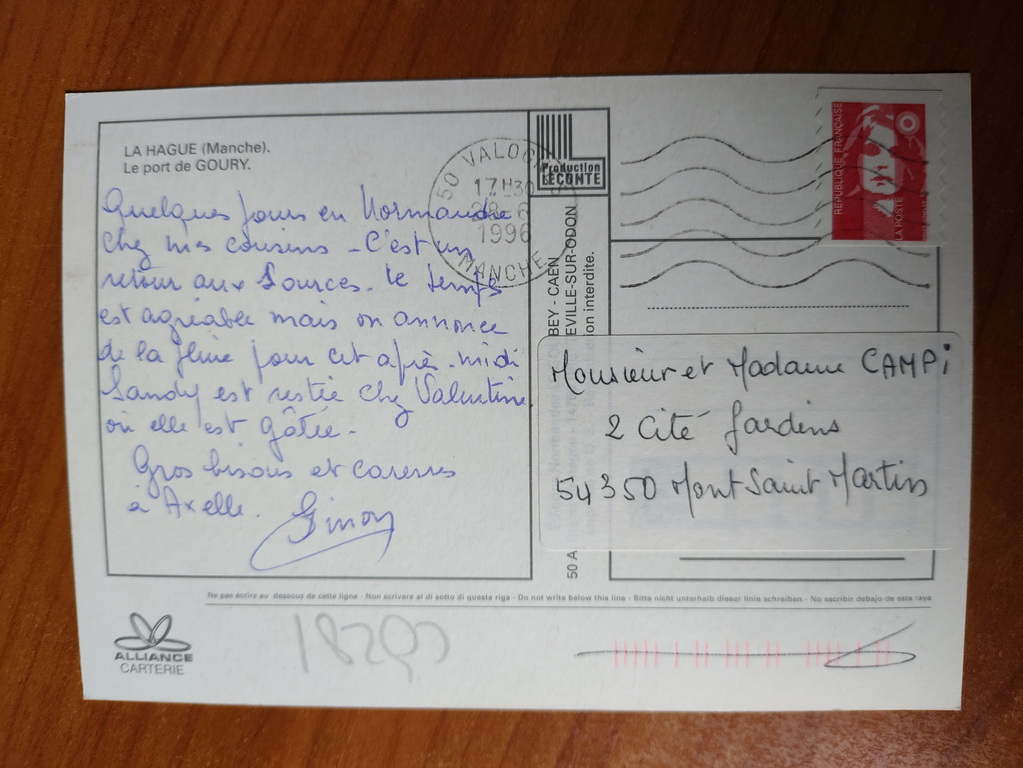 LA HAGUE (Manche).
Le port de GOURY.
Quelques jours en Normandie
chez mes cousins - C'est un
retour aux Sources. le temps
est agréable mais on annonce
de la pluie pour cet après-midi
Sandy est restée chez Valentine
où elle est gâtée.
Gros bisous et caresses
à Axelle.
50 VALOGNES
17H30
28-6
1996
MANCHE
Production
LECONTE
BEY - CAEN
EVILLE-SUR-ODON
on interdite.
50 A
REPUBLIQUE FRANÇAISE
LA POSTE
Monsieur et Madame CAMPi
2 Cité Jardins
54350 Mont Saint Martin
Ne pas écrire au dessous de cette ligne - Non scrivere al di sotto di questa riga - Do not write below this line - Bitte nicht unterhalb dieser linie schreiben - No escribir debajo de esta raya
ALLIANCE
CARTERIE